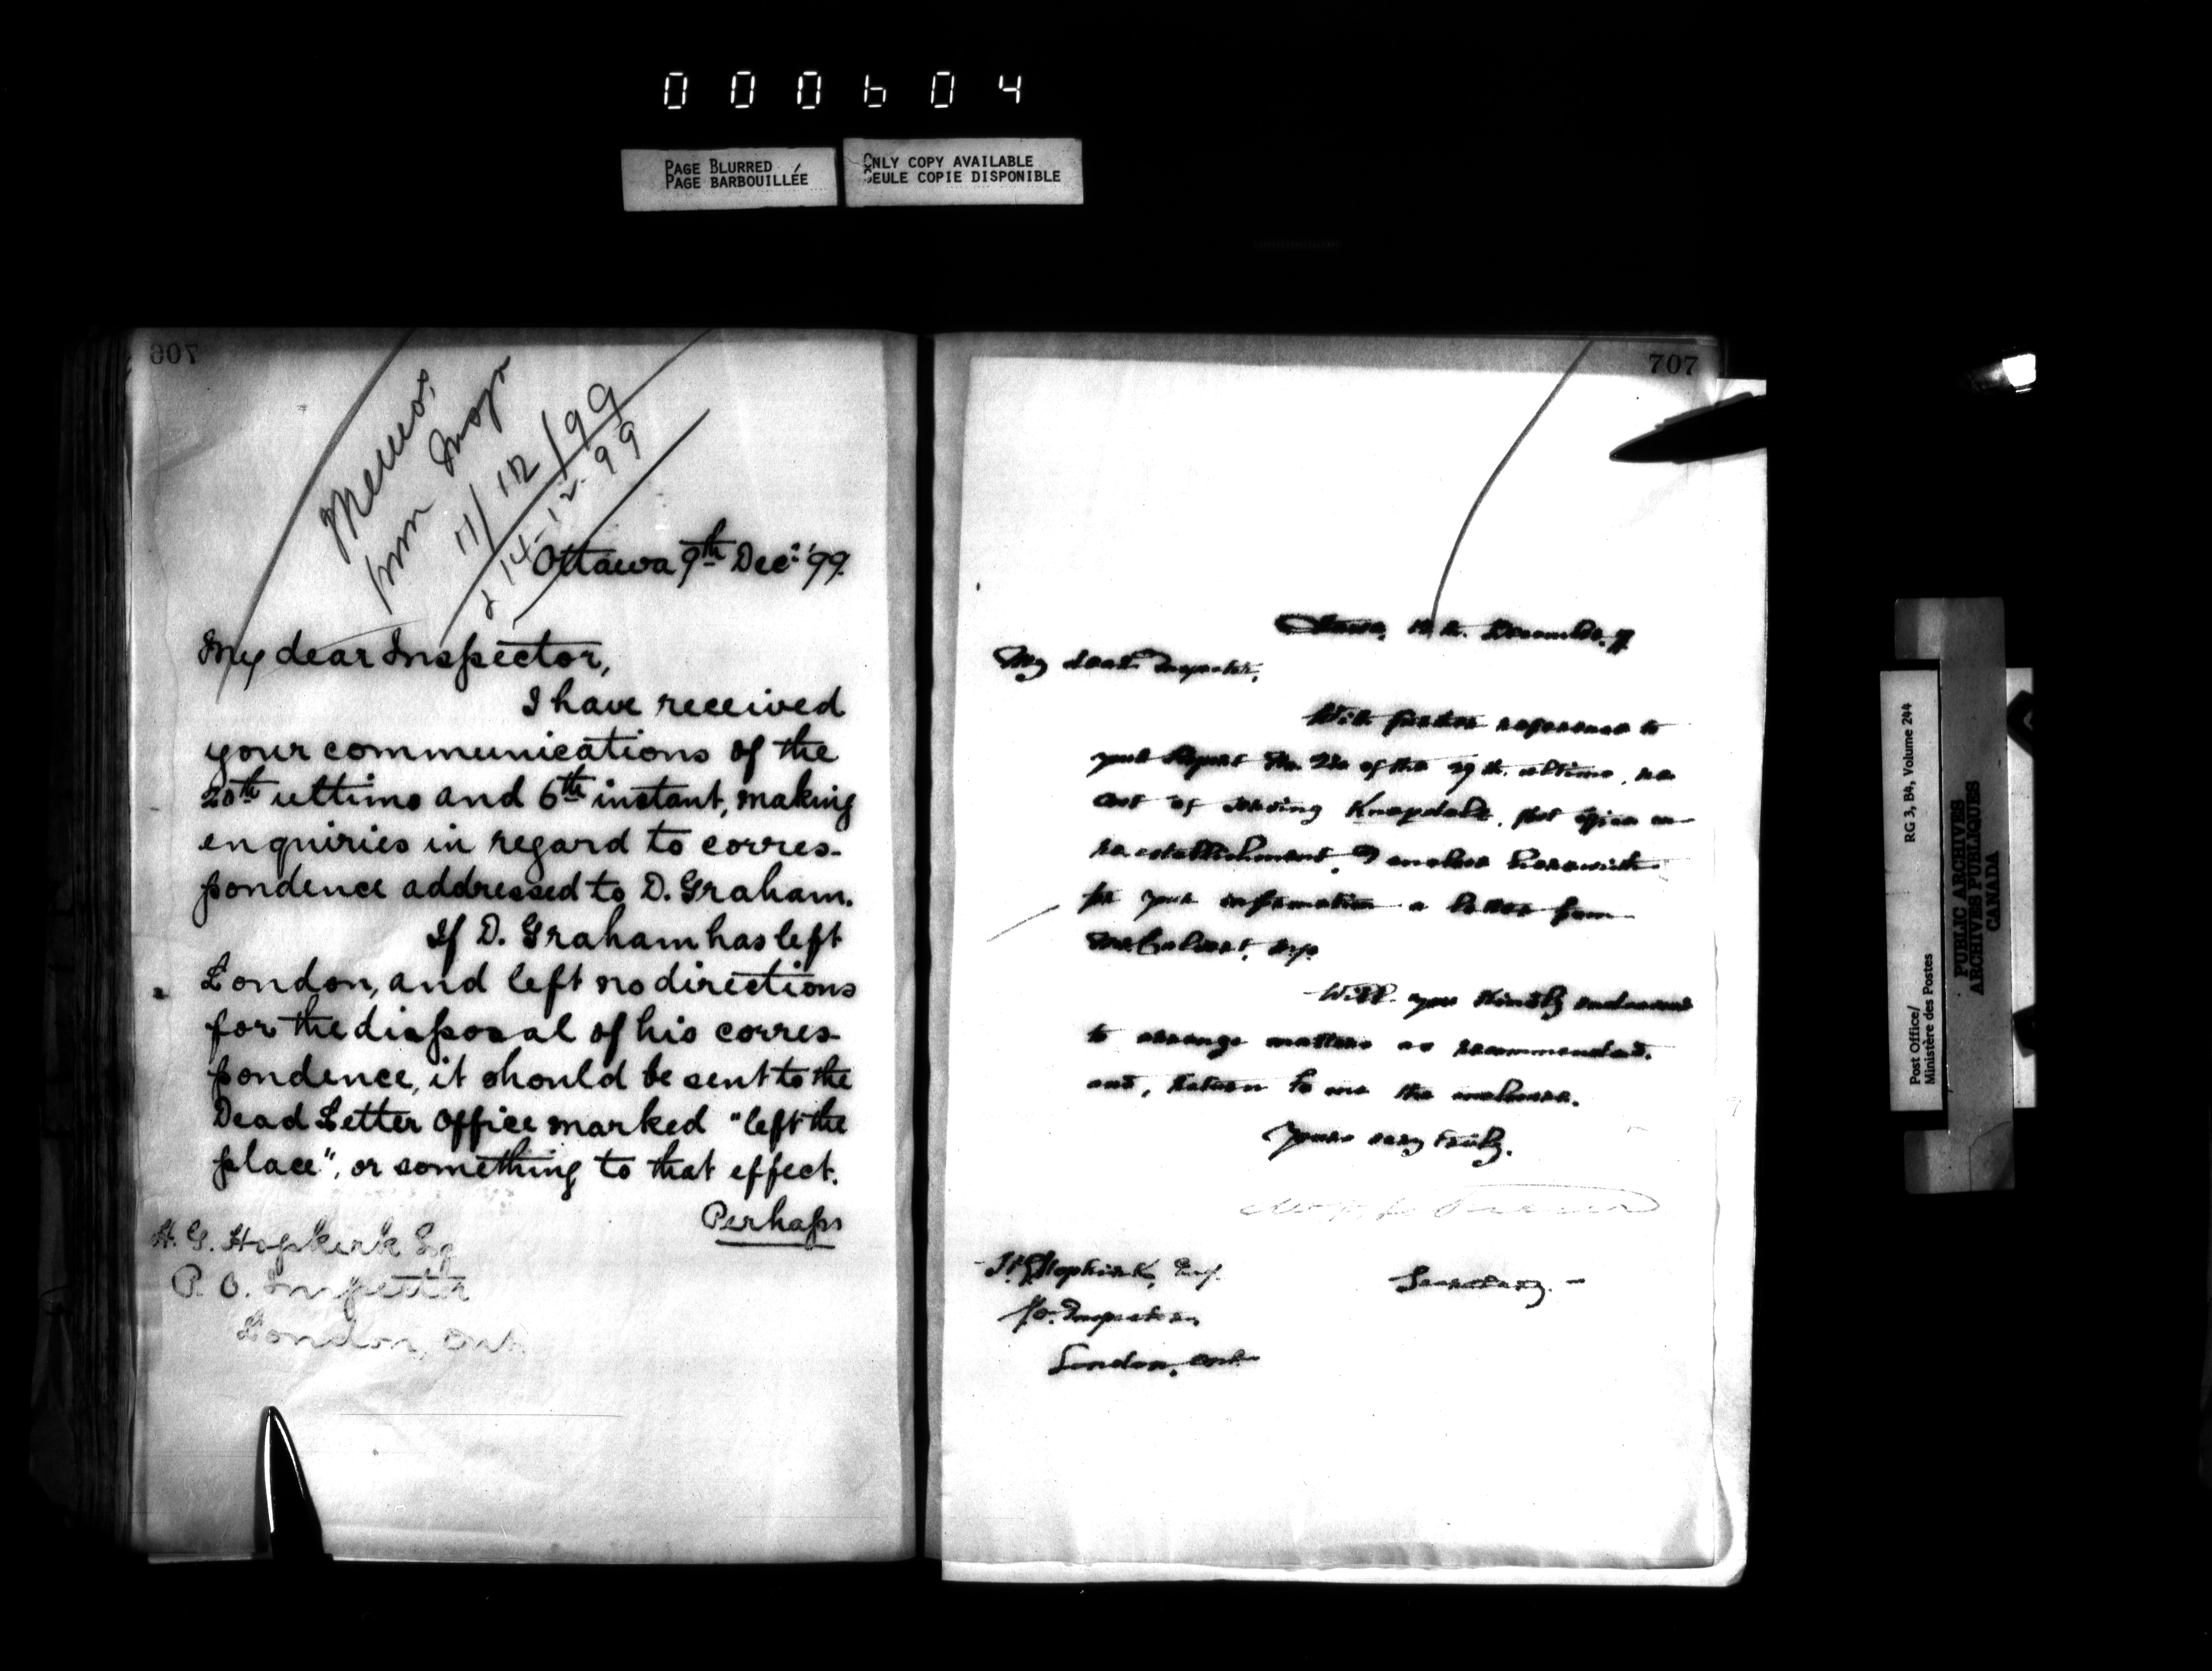 000604
PAGE BLURRED
PAGE BARBOUILLÉE
ONLY COPY AVAILABLE
SEULE COPIE DISPONIBLE
707
Memo.
from Insp.
11/12/99
& 14-12-99
Ottawa 9th Dec: '99.
My dear Inspector,
I have received
your communications of the
20th ultimo and 6th instant, making
enquiries in regard to corres-
pondence addressed to D. Graham.
If D. Graham has left
London, and left no directions
for the disposal of his corres-
pondence, it should be sent to the
Dead Letter Office marked "left the
place", or something to that effect.
Perhaps
H. G. Hopkirk Esq
P. O. Inspector
London, Ont
707
December
My dear Inspector,
With further reference to
your Report No. of the 29th. ultimo, re
cost of serving Knapdale, post office on
re-establishment, I enclose herewith
for your information a letter from
Mr. Calvert, M.P.
Will you kindly endeavour
to arrange matters as recommended,
and, return to me the enclosure.
Yours very truly.
Secretary.-
H. G. Hopkirk, Esq.
P.O. Inspector,
London, Ont.
Post Office/
Ministère des Postes
RG 3, B4, Volume 244
PUBLIC ARCHIVES
ARCHIVES PUBLIQUES
CANADA